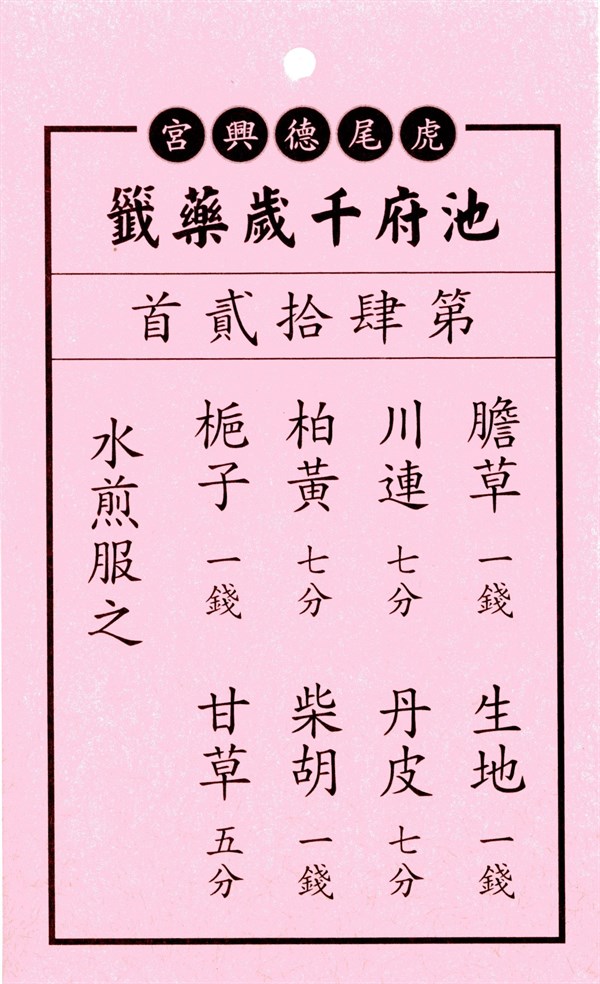 虎尾德興宮
池府千歲藥籤
第肆拾貳首
膽草一錢 生地一錢
川連七分 丹皮七分
柏黃七分 柴胡一錢
梔子一錢 甘草五分
水煎服之